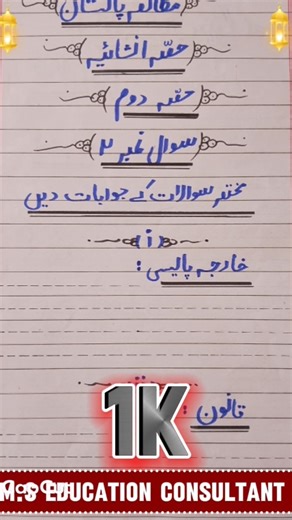 مطالعہ پاکستان
حصّہ انشائیہ
حصّہ دوم
سوال نمبر ۲
مختصر سوالات کے جوابات دیں
(i)
خارجہ پالیسی :
قانون :
1K
M.S EDUCATION CONSULTANT